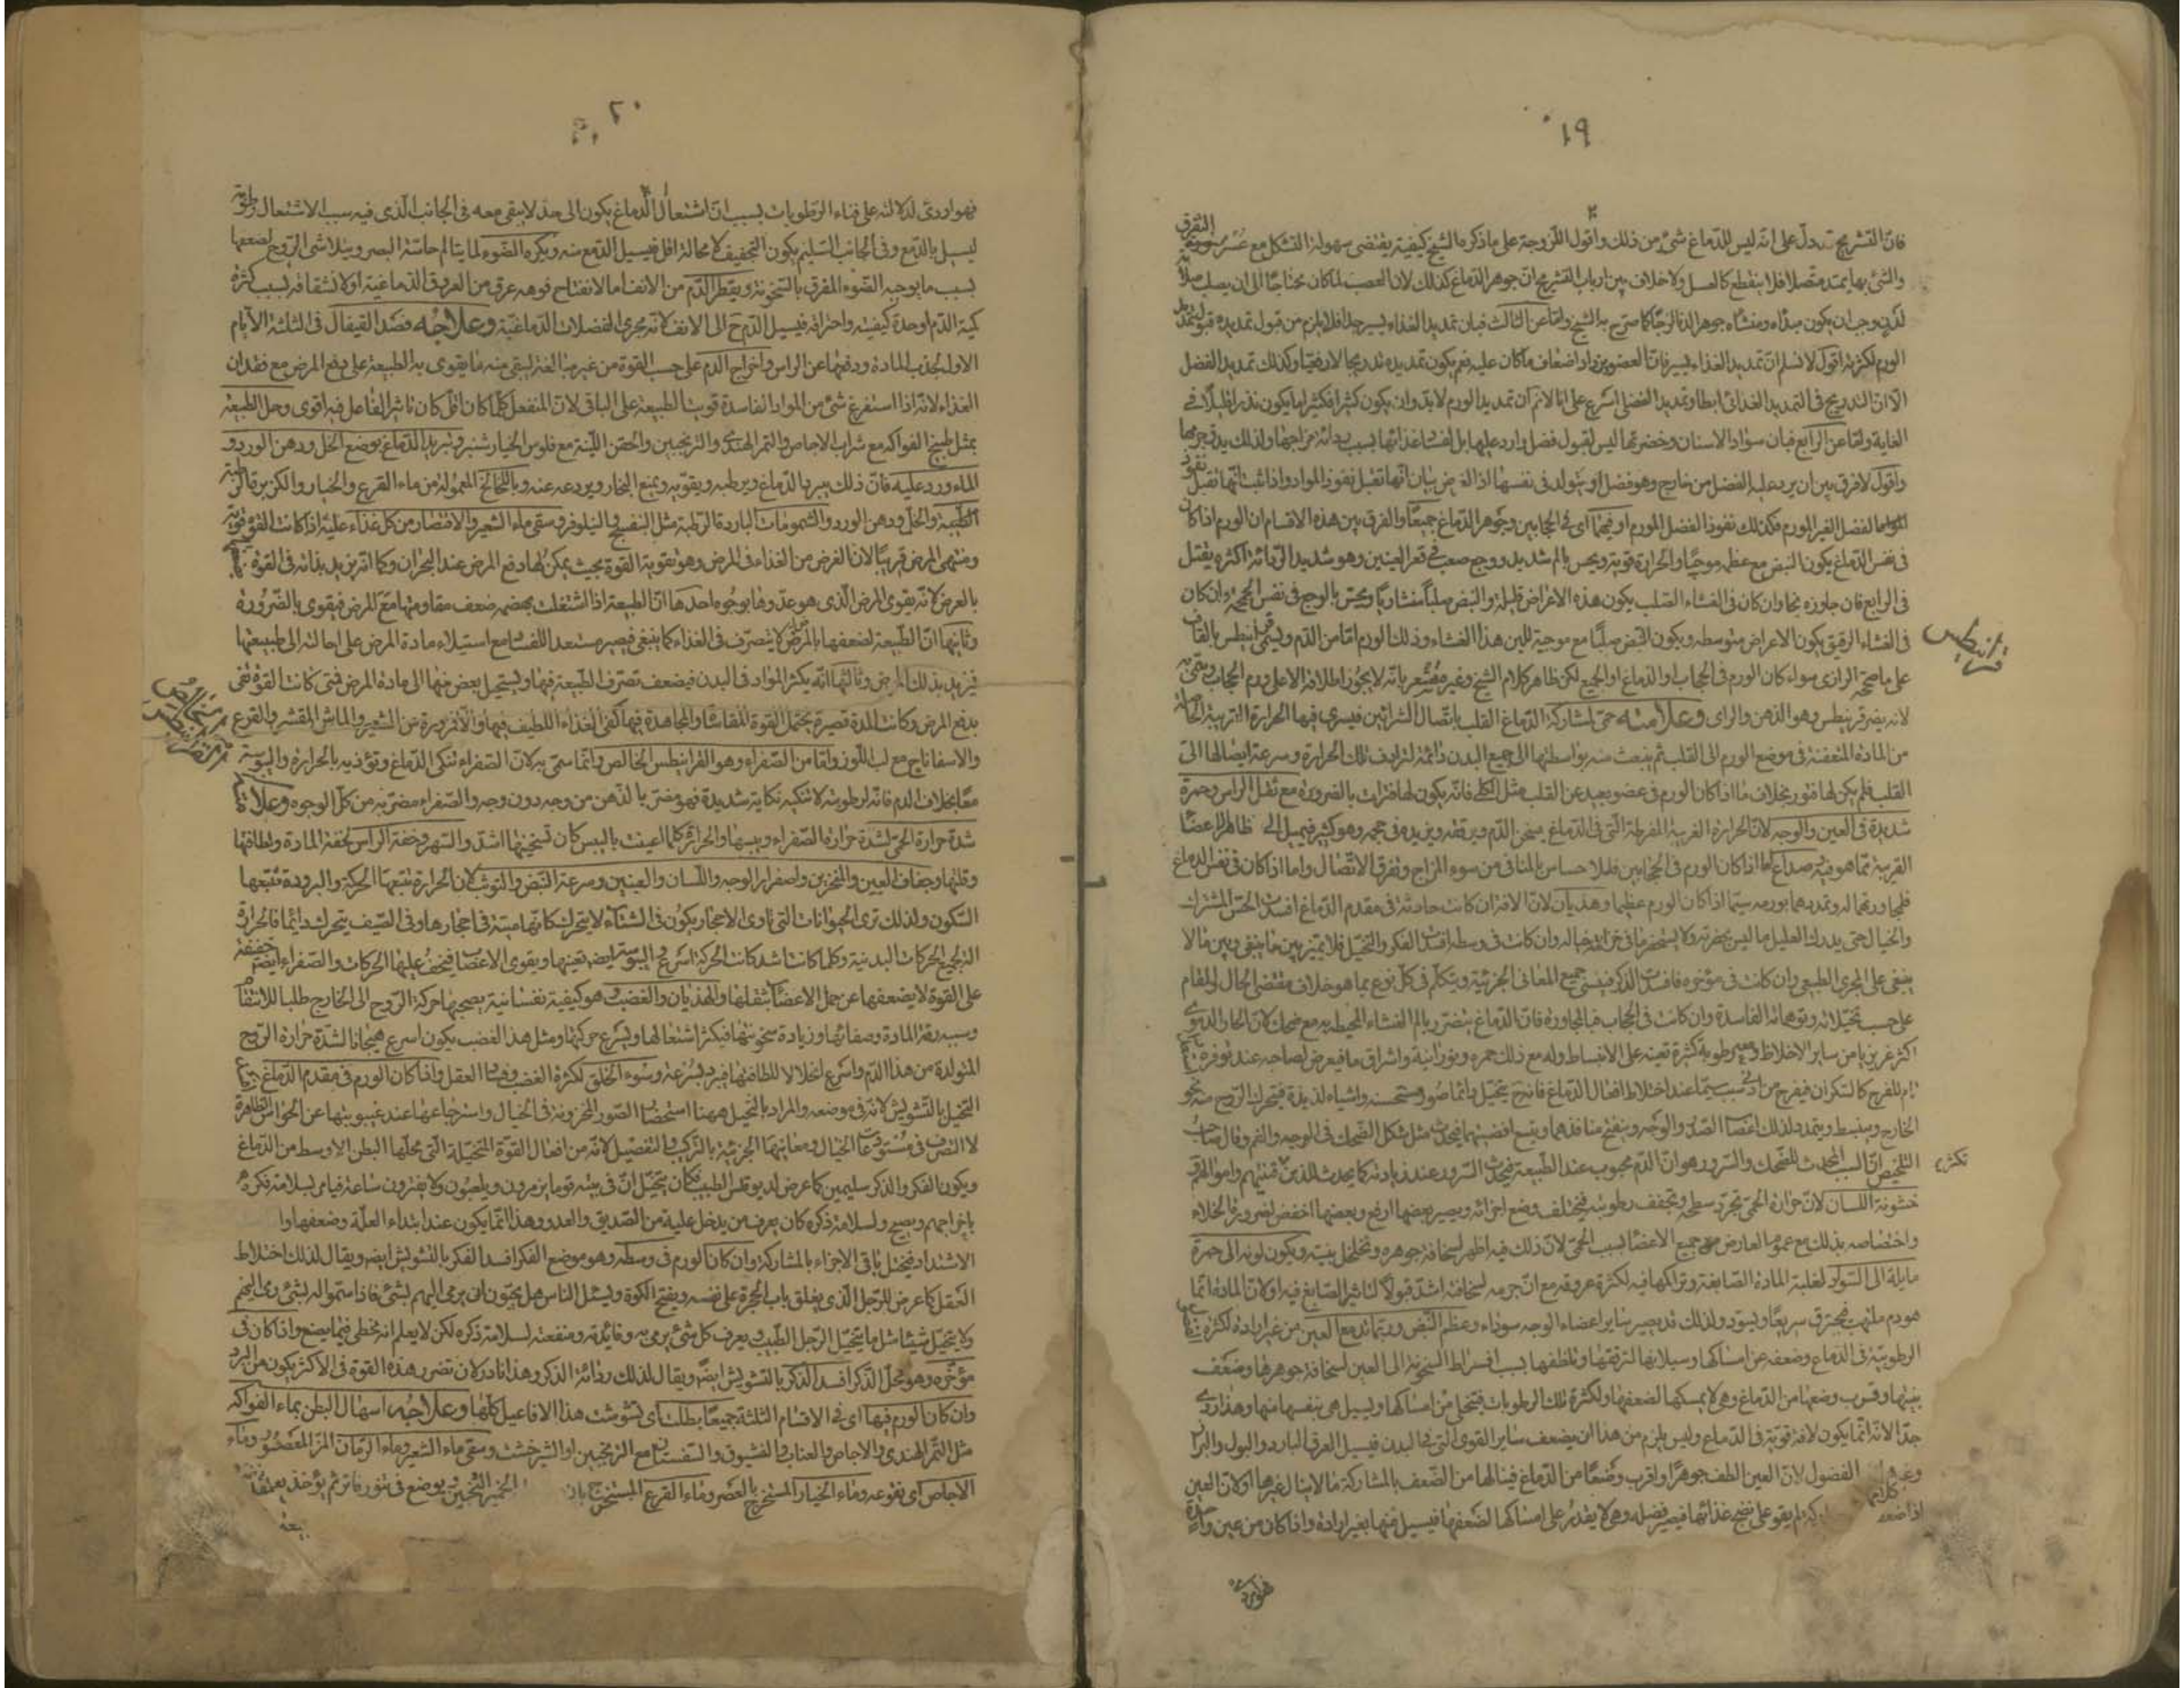 ١٩
فان التشريح تدل على انه ليس للدماغ شئ من ذلك واقول اللزوجة على ما ذكره الشيخ كيفية يقتضى سهولة التشكل مع عسر التفرق
والشئ بها يمتد متصلا فلا ينقطع كالعسل ولا خلاف بين ارباب التشريح ان جوهر الدماغ كذلك لان العصب لما كان محتاجا الى ان يصلب
لدن وجب ان يكون مبداه ومنشاه جوهر الدنا لزجا كما صرح به الشيخ واما عن الثالث فبان تمديد الغذاء يسير جدا فلا يلزم من قبول تمديده قبول تمديد
الورم لكثرته اقول لا نسلم ان تمديد الغذاء يسير فان العضو يزداد اضعاف ما كان عليه نعم يكون تمديده تدريجا لا دفعيا وكذلك تمديد الفضل
الا ان التدريج فى التمديد الغذائى ابطا وتمديد الفضلى اسرع على انا لانم ان تمديد الورم لابد وان يكون كثيرا فكثيرا ما يكون نذرا قليلا فى
الغاية واما عن الرابع فبان سواد الاسنان وخضرتها ليس لقبول فضل وارد عليها بل لفساد غذائها بسبب رداءة مزاجها ولذلك
واقول لا فرق بين ان يرد عليه الفضل من خارج وهو فضل او يتولد فى نفسها اذ الغرض بيان انها تقبل نفوذ المواد واذا ثبت انها تقبل نفوذ
الفضل الغير المورم فكذلك نفوذ الفضل المورم او فيهما اى فى الحجابين وجوهر الدماغ جميعا والفرق بين هذه الاقسام ان الورم اذا كان
فى نفس الدماغ يكون النبض مع عظمه موجيا والحرارة قوية ويحس بالم شديد ووجع صعب فى قعر العينين وهو شديد الرداءة اكثره يقتل
فى الرابع فان جاوزه نجا وان كان فى الغشاء الصلب يكون هذه الاعراض قليلة والنبض صلبا منشاريا ويحس بالوجع فى نفس الجمجمة وان كان
فى الغشاء الرقيق يكون الاعراض متوسطه ويكون النبض صلبا مع موجية للين هذا الغشاء وذلك الورم اما من الدم ويسمى قرانيطس بالقاف
قرانيطس
على ما صححه الرازى سواء كان الورم فى الحجاب او الدماغ او الجميع لكن ظاهر كلام الشيخ وغيره مشعر بانه لا يجوز اطلاقه الا على ورم الحجاب
لانه يضر قرنيطس وهو الذهن والراى وعلامته حمى لمشاركة الدماغ القلب باتصال الشرائين فيسرى فيها الحرارة الغريبة
من المادة المتعفنة فى موضع الورم الى القلب ثم ينبعث منه بواسطتها الى جميع البدن دائمة لترادف تلك الحرارة وسرعة ايصالها الى
القلب فلم يكن لها فتور بخلاف ما اذا كان الورم فى عضو بعيد عن القلب مثل الكلى فانه يكون لها فترات بالضرورة مع ثقل الراس وحمرة
شديدة فى العين والوجه لان الحرارة الغريبة المفرطة التى فى الدماغ يسخن الدم ويرققه ويزيد فى حجمه وهو كثير فيميل الى ظاهر الاعضاء
القريبة مما هو فيه وصداع اما اذا كان الورم فى الحجابين فللاحساس بالمنافى من سوء المزاج وتفرق الاتصال واما اذا كان فى نفس الدماغ
فلمجاورتها له وتمديدهما بورمه سيما اذا كان الورم عظيما وهذيان لان الافة ان كانت حادثة فى مقدم الدماغ افسدت الحس المشترك
والخيال حتى يدرك العليل ما ليس بحضرته ولا يستحضر ما فى خزانة خياله وان كانت فى وسطه افسد الفكر والتخيل فلا يميز بين ما ينبغى وبين ما لا
ينبغى على المجرى الطبيعى وان كانت فى مؤخره فافسدت الذكر فينسى جميع المعانى الجزئية ويتكلم فى كل نوع بما هو خلاف مقتضى الحال والمقام
على حسب تخيلاته وتوهماته الفاسدة وان كانت فى الحجاب فبالمجاورة فان الدماغ يتضرر بالم الغشاء المحيط به مع ضحك لان الحار الدموى
اكثر غريزيا من ساير الاخلاط وفيه رطوبة كثيرة تعينه على الانبساط وله مع ذلك حمرة ونورانية واشراق ما فيعرض لصاحبه عند توفره
تام للفرح كالسكران فيفرح من ادنى سبب سيما عند اختلاط افعال الدماغ فانه ح يتخيل دائما صور مستحسنة واشياء لذيذة فيتحرك الروح منه نحو
الخارج وينبسط ويتمدد لذلك اعضاء الصدر والوجه وينفتح منافذهما ويتسع اقضيتهما فيحدث مثل شكل الضحك فى الوجه والفم وقال صاحب
التلخيص ان السبب المحدث للضحك والسرور هو ان الدم محبوب عند الطبيعة فيحدث السرور عند زيادته كما يحدث للذين قنيتهم واموالهم
تكثر
خشونة اللسان لان حرارة الحمى تجرد سطحه وتجفف رطوبته فيختلف وضع اجزائه ويصير بعضها ارفع وبعضها اخفض لضرورة الخلاء
واختصاصه بذلك مع عموم العارض جميع الاعضاء لسبب الحمى لان ذلك فيه اظهر لسخافة جوهره وتخلخل بنيته ويكون لونه الى حمرة
مايلة الى السواد لغلبة المادة الصابغة وتراكمها فيه لكثرة عروقه مع ان جرمه لسخافته اشد قبولا لتاثير الصابغ فيه او لان المادة انما
هو دم ملتهب محترق سريعا ويسود ولذلك قد يصير ساير اعضاء الوجه سوداء وعظم النبض وربما تدمع العين من غير ارادة لكثرة
الرطوبة فى الدماغ وضعفه عن امساكها وسيلانها لترققها وتلطفها بسبب افراط السخونة الى العين لسخافة جوهرها وضعف
بنيتها وقرب وضعها من الدماغ وهى لا يمسكها لضعفها ولكثرة تلك الرطوبات فيتخلى من امساكها ويسيل هى بنفسها منها وهذا ردى
جدا لانه انما يكون لافة قوية فى الدماغ وليس يلزم من هذا ان يضعف ساير القوى التى فى البدن فيسيل العرق البارد والبول والبراز
الفضول لان العين الطف جوهرا واقرب وضعا من الدماغ فينالها من الضعف بالمشاركة ما لا ينال غيرها او لان العين
لم يقو على نضج غذائها فيصير فضلة وهى لا يقدر على امساكها لضعفها فيسيل منها بغير ارادة واذا كان من عين واحدة
فهو اردى
٢٠
فهو اردى لدلالته على فناء الرطوبات بسبب ان اشتعال الدماغ يكون الى حد لا يبقى معه فى الجانب الذى فيه سبب الاشتعال رطوبة
ليسيل بالدمع وفى الجانب السليم يكون التجفيف لا محالة اقل فيسيل الدمع منه ويكره الضوء لما يتالم حاسة البصر ويتلاشى الروح لضعفها
بسبب ما يوجبه الضوء المفرق بالسخونة ويقطر الدم من الانف اما لانفتاح فوهه عرق من العروق الدماغية او لانشقاقه بسبب كثرة
كمية الدم او حدة كيفيته واحتراقه فيسيل الدم ح الى الانف لانه مجرى لفضلات الدماغية وعلاجه فصد القيفال فى الثلثة الايام
الاول لجذب المادة ودفعها عن الراس واخراج الدم على حسب القوة من غير مبالغة ليبقى منه ما يقوى به الطبيعة على دفع المرض مع فقدان
الغذاء لانه اذا استفرغ شئ من المواد الفاسدة قويت الطبيعة على الباقى لان المنفعل كلما كان اقل كان تاثير الفاعل فيه اقوى وحل الطبيعة
بمثل طبيخ الفواكه مع شراب الاجاص والتمر الهندى والترنجبين والحقن اللينة مع فلوس الخيار شنبر وتبريد الدماغ بوضع الخل ودهن الورد و
الماء ورد عليه فان ذلك يبرد الدماغ ويرطبه ويقويه ويمنع البخار ويردعه عنه وباللخالخ المعمولة من ماء القرع والخيار والكزبرة الرطبة
والخل ودهن الورد والشمومات الباردة الرطبة مثل البنفسج والنيلوفر وسقى ماء الشعير والاقتصار من كل غذاء عليه اذا كانت القوة قوية
ومنتهى المرض قريبا لان الغرض من الغذاء فى المرض وهو تقوية القوة بحيث يمكن لها دفع المرض عند البحران وكما انه يزيد بذاته فى القوة
بالعرض لانه يقوى المرض الذى هو عدوها بوجوه احدها ان الطبيعة اذا اشتغلت بهضمه ضعف مقاومتها مع المرض فيقوى بالضرورة
وثانيها ان الطبيعة لضعفها بالمرض لا يتصرف فى الغذاء كما ينبغى فيصير مستعدا للفساد مع استيلاء مادة المرض على احالته الى طبيعتها
فيزيد بذلك المرض وثالثها انه يكثر المواد فى البدن فيضعف تصرف الطبيعة فيها ويستحيل بعض منها الى مادة المرض فمتى كانت القوة تفى
بدفع المرض وكانت المدة قصيرة يحتمل القوة المقاساة والمجاهدة فيها كفى الغذاء اللطيف فيها والا فمزورة من الشعير والماش المقشر والقرع
والاسفاناج مع لب اللوز واما من الصفراء وهو القرانيطس الخالص وانما سمى به لان الصفراء تنكى الدماغ وتؤذيه بالحرارة واليبوسة
معا بخلاف الدم فانه لرطوبته لا تنكيه نكاية شديدة فهو مضر بالذهن من وجه دون وجه والصفراء مضرة به من كل الوجوه وعلامته
شدة حرارة الحمى لشدة حرارة الصفراء ويبسها والحرارة كلما اعينت باليبس كان تسخينها اشد والسهر وخفة الراس لخفة المادة ولطافتها
وقلتها وجفاف العين والمنخرين واصفرار الوجه واللسان والعينين وسرعة النبض والتوثب لان الحرارة تتبعها الحركة والبرودة تتبعها
السكون ولذلك ترى الحيوانات التى تاوى الاحجار يكون فى الشتاء لا يتحرك كانها ميتة فى احجارها وفى الصيف يتحرك دائما فالحرارة
تهيج الحركات البدنية وكلما كانت اشد كانت الحركة اسرع واليبوسة ايضا تعينها ويقوى الاعصاب فيخف عليها الحركات والصفراء ايضا خفيفة
على القوة لا يضعفها عن حمل الاعضاء بثقلها والهذيان والغضب وهو كيفية نفسانية يصحبها حركة الروح الى الخارج طلبا للانتقام
وسببه رقة المادة وصفائها وزيادة سخونتها فيكثر اشتعالها ويسرع حركتها ومثل هذا الغضب يكون اسرع هيجانا لشدة حرارة الروح
المتولدة من هذا الدم واسرع انحلالا للطافتها فيبرد بسرعة وسوء الخلق لكثرة الغضب وفساد العقل واذا كان الورم فى مقدم الدماغ
التخيل بالتشويش لانه فى موضعه والمراد بالتخيل ههنا استحضار الصور المخزونة فى الخيال واسترجاعها عند غيبوبتها عن الحواس الظاهرة
لا التصرف فى مستودعات الخيال ومعانيها الجزئية بالتركيب والتفصيل لانه من افعال القوة المتخيلة التى محلها البطن الاوسط من الدماغ
ويكون الفكر والذكر سليمين كما عرض لديوفلس الطبيب فكان يتخيل ان فى بيته قوما يزمرون ويلعبون ولا يفترون ساعة فيامر لسلامة فكره
باخراجهم ويصيح ولسلامة ذكره كان يعرف من يدخل عليه من الصديق والعدو وهذا انما يكون عند ابتداء العلة وضعفها واما
الاشتداد فيختل باقى الاجزاء بالمشاركة وان كان الورم فى وسطه وهو موضع الفكر افسد الفكر بالتشويش ايضا ويقال لذلك اختلاط
العقل كما عرض للرجل الذى يغلق باب الحجرة على نفسه ويفتح الكوة ويسئل الناس هل يحبون ان يرمى اليهم بشئ فاذا ستموا له بشئ رمى اليهم
ولا يتخيل شيئا مثل ما يتخيل الرجل الطبيب ويعرف كل شئ يرمى به وفائدته ومنفعته لسلامة ذكره لكن لا يعلم انه يخطى فيما يضع واذا كان فى
مؤخره وهو محل الذكر افسد الذكر بالتشويش ايضا ويقال لذلك رداءة الذكر وهذا نادر لان تضرر هذه القوة فى الاكثر يكون من البرد
وان كان الورم فيها اى فى الاقسام الثلثة جميعا بطلت اى تشوشت هذا الافاعيل كلها وعلاجه اسهال البطن بماء الفواكه
مثل التمر الهندى والاجاص والعناب والمشمش والسفستان مع الترنجبين او الشيرخشت وسقى ماء الشعير وماء الرمان المز المعصور وماء
الاجاص اى نقوعه وماء الخيار المستخرج بالعصر وماء القرع المستخرج بان الخمير الثخين ويوضع فى تنور فاتر ثم يؤخذ